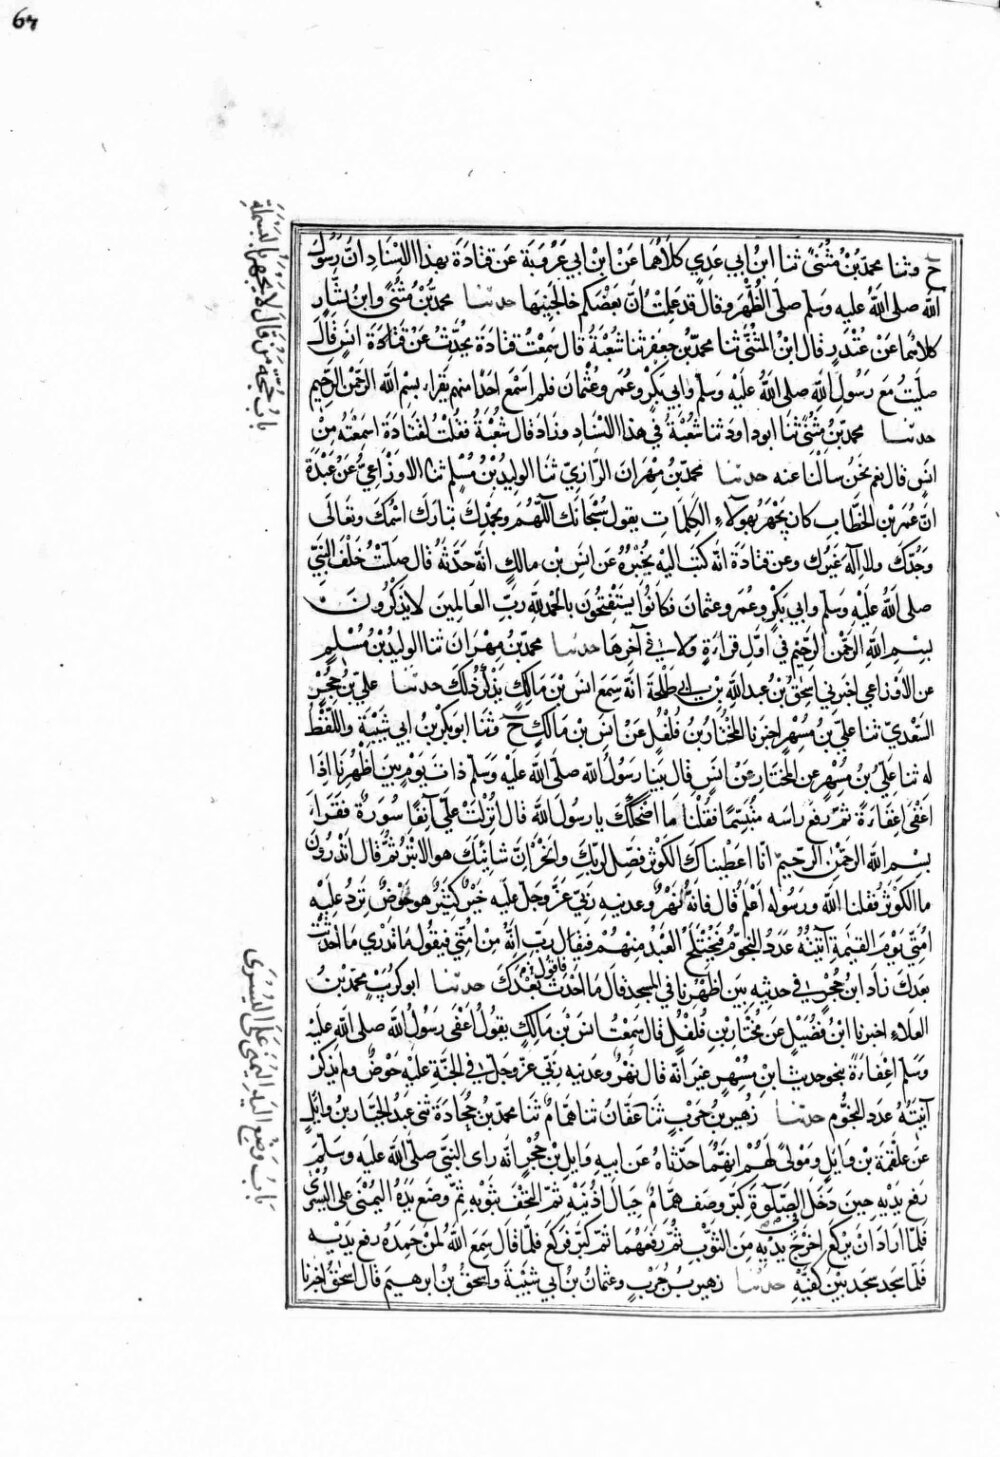 64
باب حجة من قال لا يجهر بالبسملة
ح وثنا محمد بن مثنى ثنا ابن ابي عدي كلاهما عن ابن ابي عروبة عن قتادة بهذا الاسناد ان رسول
الله صلى الله عليه وسلم صلى الظهر وقال قد علمت ان بعضكم خالجنيها حدثنا محمد بن مثنى وابن بشار
كلاهما عن غندر قال ابن المثنى ثنا محمد بن جعفر ثنا شعبة قال سمعت قتادة يحدث عن قتادة انس قال
صليت مع رسول الله صلى الله عليه وسلم وابي بكر وعمر وعثمان فلم اسمع احدا منهم يقراء بسم الله الرحمن الرحيم
حدثنا محمد بن مثنى ثنا ابو داود ثنا شعبة في هذا الاسناد وزاد قال شعبة فقلت لقتادة اسمعته من
انس قال نعم نحن سالنا عنه حدثنا محمد بن مهران الرازي ثنا الوليد بن مسلم ثنا الاوزاعي عن عبدة
ان عمر بن الخطاب كان يجهر بهولاء الكلمات يقول سبحانك اللهم وبحمدك تبارك اسمك وتعالى
وجدك ولا اله غيرك وعن قتادة انه كتب اليه يخبره عن انس بن مالك انه حدثه قال صليت خلف النبي
صلى الله عليه وسلم وابي بكر وعمر وعثمان فكانوا يستفتحون بالحمد لله رب العالمين لا يذكرون
بسم الله الرحمن الرحيم في اول قراءة ولا في آخرها حدثنا محمد بن مهران ثنا الوليد بن مسلم
عن الاوزاعي اخبرني اسحق بن عبد الله بن ابي طلحة انه سمع انس بن مالك يذكر ذلك حدثنا علي بن حجر
السعدي ثنا علي بن مسهر اخبرنا المختار بن فلفل عن انس بن مالك ح وثنا ابو بكر بن ابي شيبة واللفظ
له ثنا علي بن مسهر عن المختار عن انس قال بينا رسول الله صلى الله عليه وسلم ذات يوم بين اظهرنا اذا
اغفى اغفاءة ثم رفع راسه متبسما فقلنا ما اضحكك يا رسول الله قال انزلت علي آنفا سورة فقراء
بسم الله الرحمن الرحيم انا اعطيناك الكوثر فصل لربك وانحر ان شانئك هو الابتر ثم قال اتدرون
ما الكوثر فقلنا الله ورسوله اعلم قال فانه نهر وعدنيه ربي عز وجل عليه خير كثير هو حوض ترد عليه
امتي يوم القيمة آنيته عدد النجوم فيختلج العبد منهم فاقول فيقال رب انه من امتي فيقول ما تدري ما احدثت
بعدك زاد ابن حجر في حديثه بين اظهرنا في المسجد قال ما احدث بعدك حدثنا ابو كريب محمد بن
العلاء اخبرنا ابن فضيل عن مختار بن فلفل قال سمعت انس بن مالك يقول اغفى رسول الله صلى الله عليه
وسلم اغفاءة بنحو حديث ابن مسهر غير انه قال نهر وعدنيه ربي عز وجل في الجنة عليه حوض ولم يذكر
آنيته عدد النجوم حدثنا زهير بن حرب ثنا عفان ثنا همام ثنا محمد بن جحادة ثنى عبد الجبار بن وايل
عن علقمة بن وايل ومولى لهم انهما حدثاه عن ابيه وايل بن حجر انه راى النبي صلى الله عليه وسلم
رفع يديه حين دخل في الصلوة كبر وصف همام حيال اذنيه ثم التحف بثوبه ثم وضع يده اليمنى على اليسرى
فلما اراد ان يركع اخرج يديه من الثوب ثم رفعهما ثم كبر فركع فلما قال سمع الله لمن حمده رفع يديه
فلما سجد سجد بين كفيه حدثنا زهير بن حرب وعثمان بن ابي شيبة واسحق بن ابرهيم قال اسحق اخبرنا
باب وضع اليد اليمنى على اليسرى